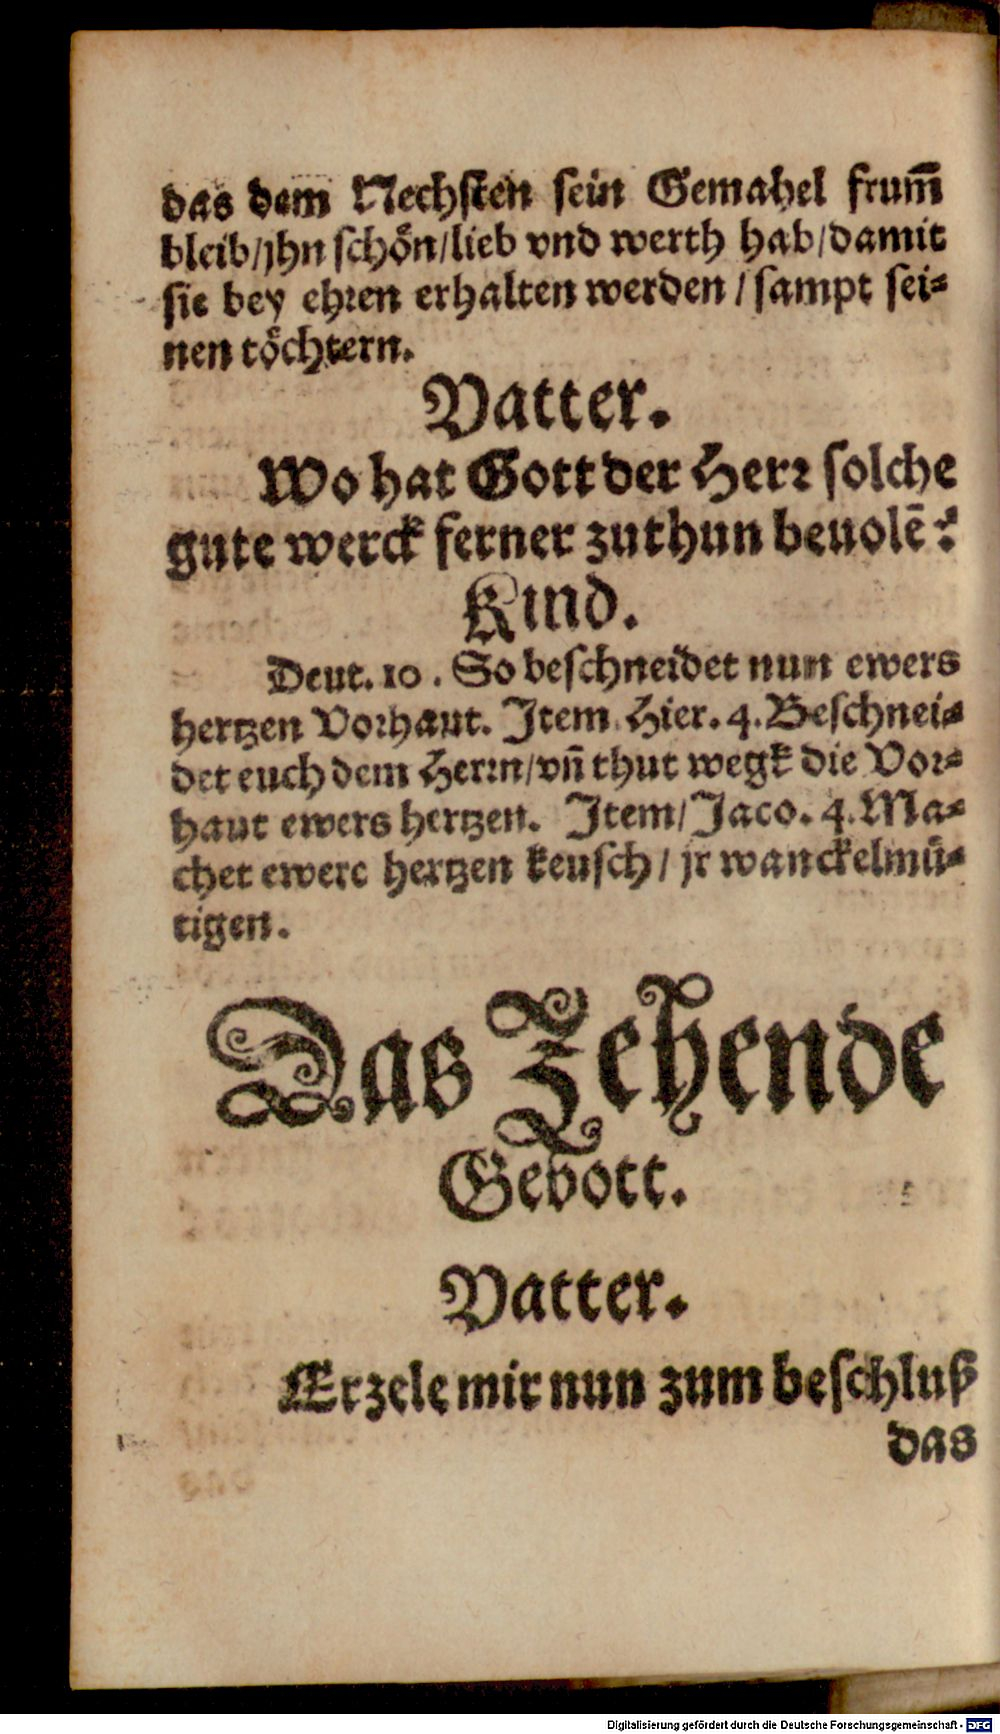 das dem Nechsten sein Gemahel frum̄
bleib/jhn schoͤn/lieb vnd werth hab/damit
sie bey ehren erhalten werden / sampt sei⸗
nen toͤchtern.
Vatter.
Wo hat Gott der Herr solche
gute werck ferner zuthun beuolē?
Kind.
Deut. 10. So beschneidet nun ewers
hertzen Vorhaut. Item Hier. 4. Beschnei⸗
det euch dem Herrn/vn̄ thut wegk die Vor⸗
haut ewers hertzen. Item/Jaco. 4. Ma⸗
chet ewere hertzen keusch / jr wanckelmuͤ⸗
tigen.
Das Zehende
Gebott.
Vatter.
Erzele mir nun zum beschluß
das
Digitalisierung gefördert durch die Deutsche Forschungsgemeinschaft - DFG